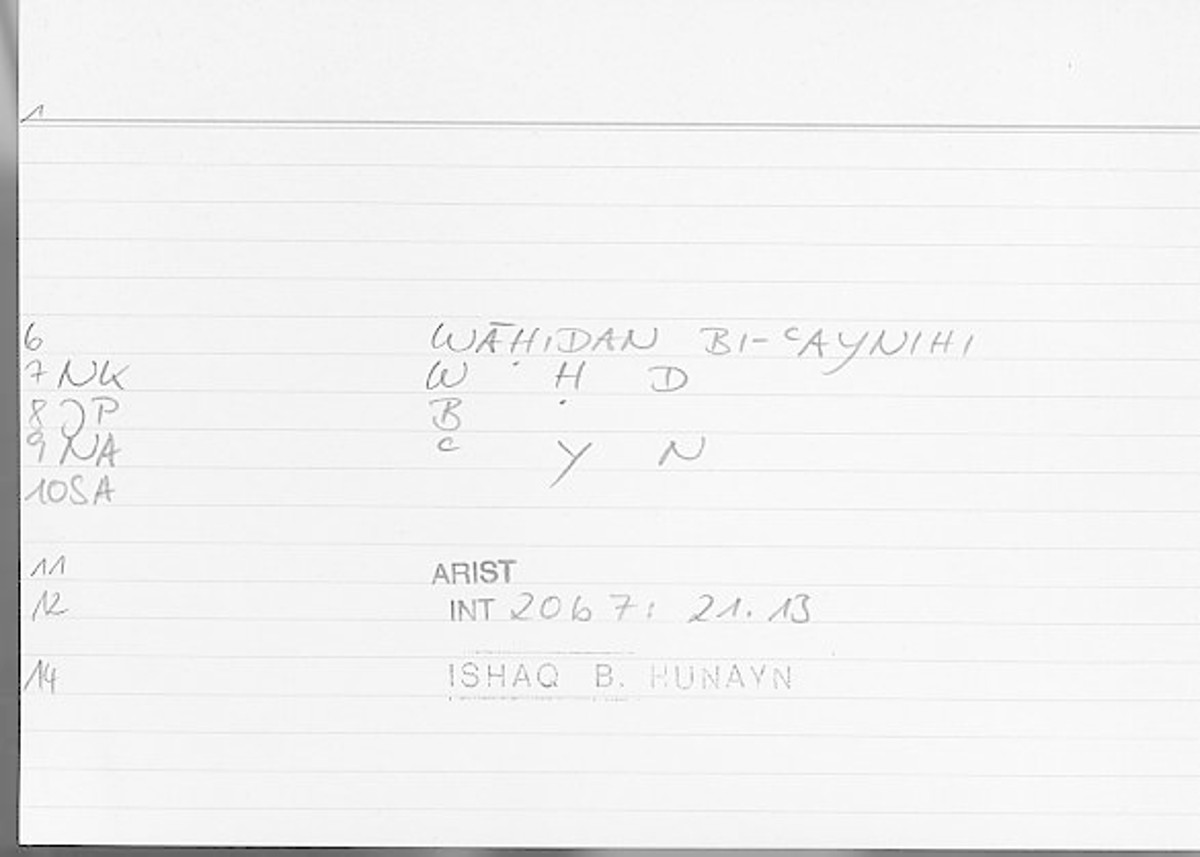 1
6 WĀḤIDAN BI-ʿAYNIHI
7 NK W Ḥ D
8 JP B
9 NA ʿ Y N
10SA
11 ARIST
12 INT 20b 7: 21.13
14 ISHAQ B. HUNAYN